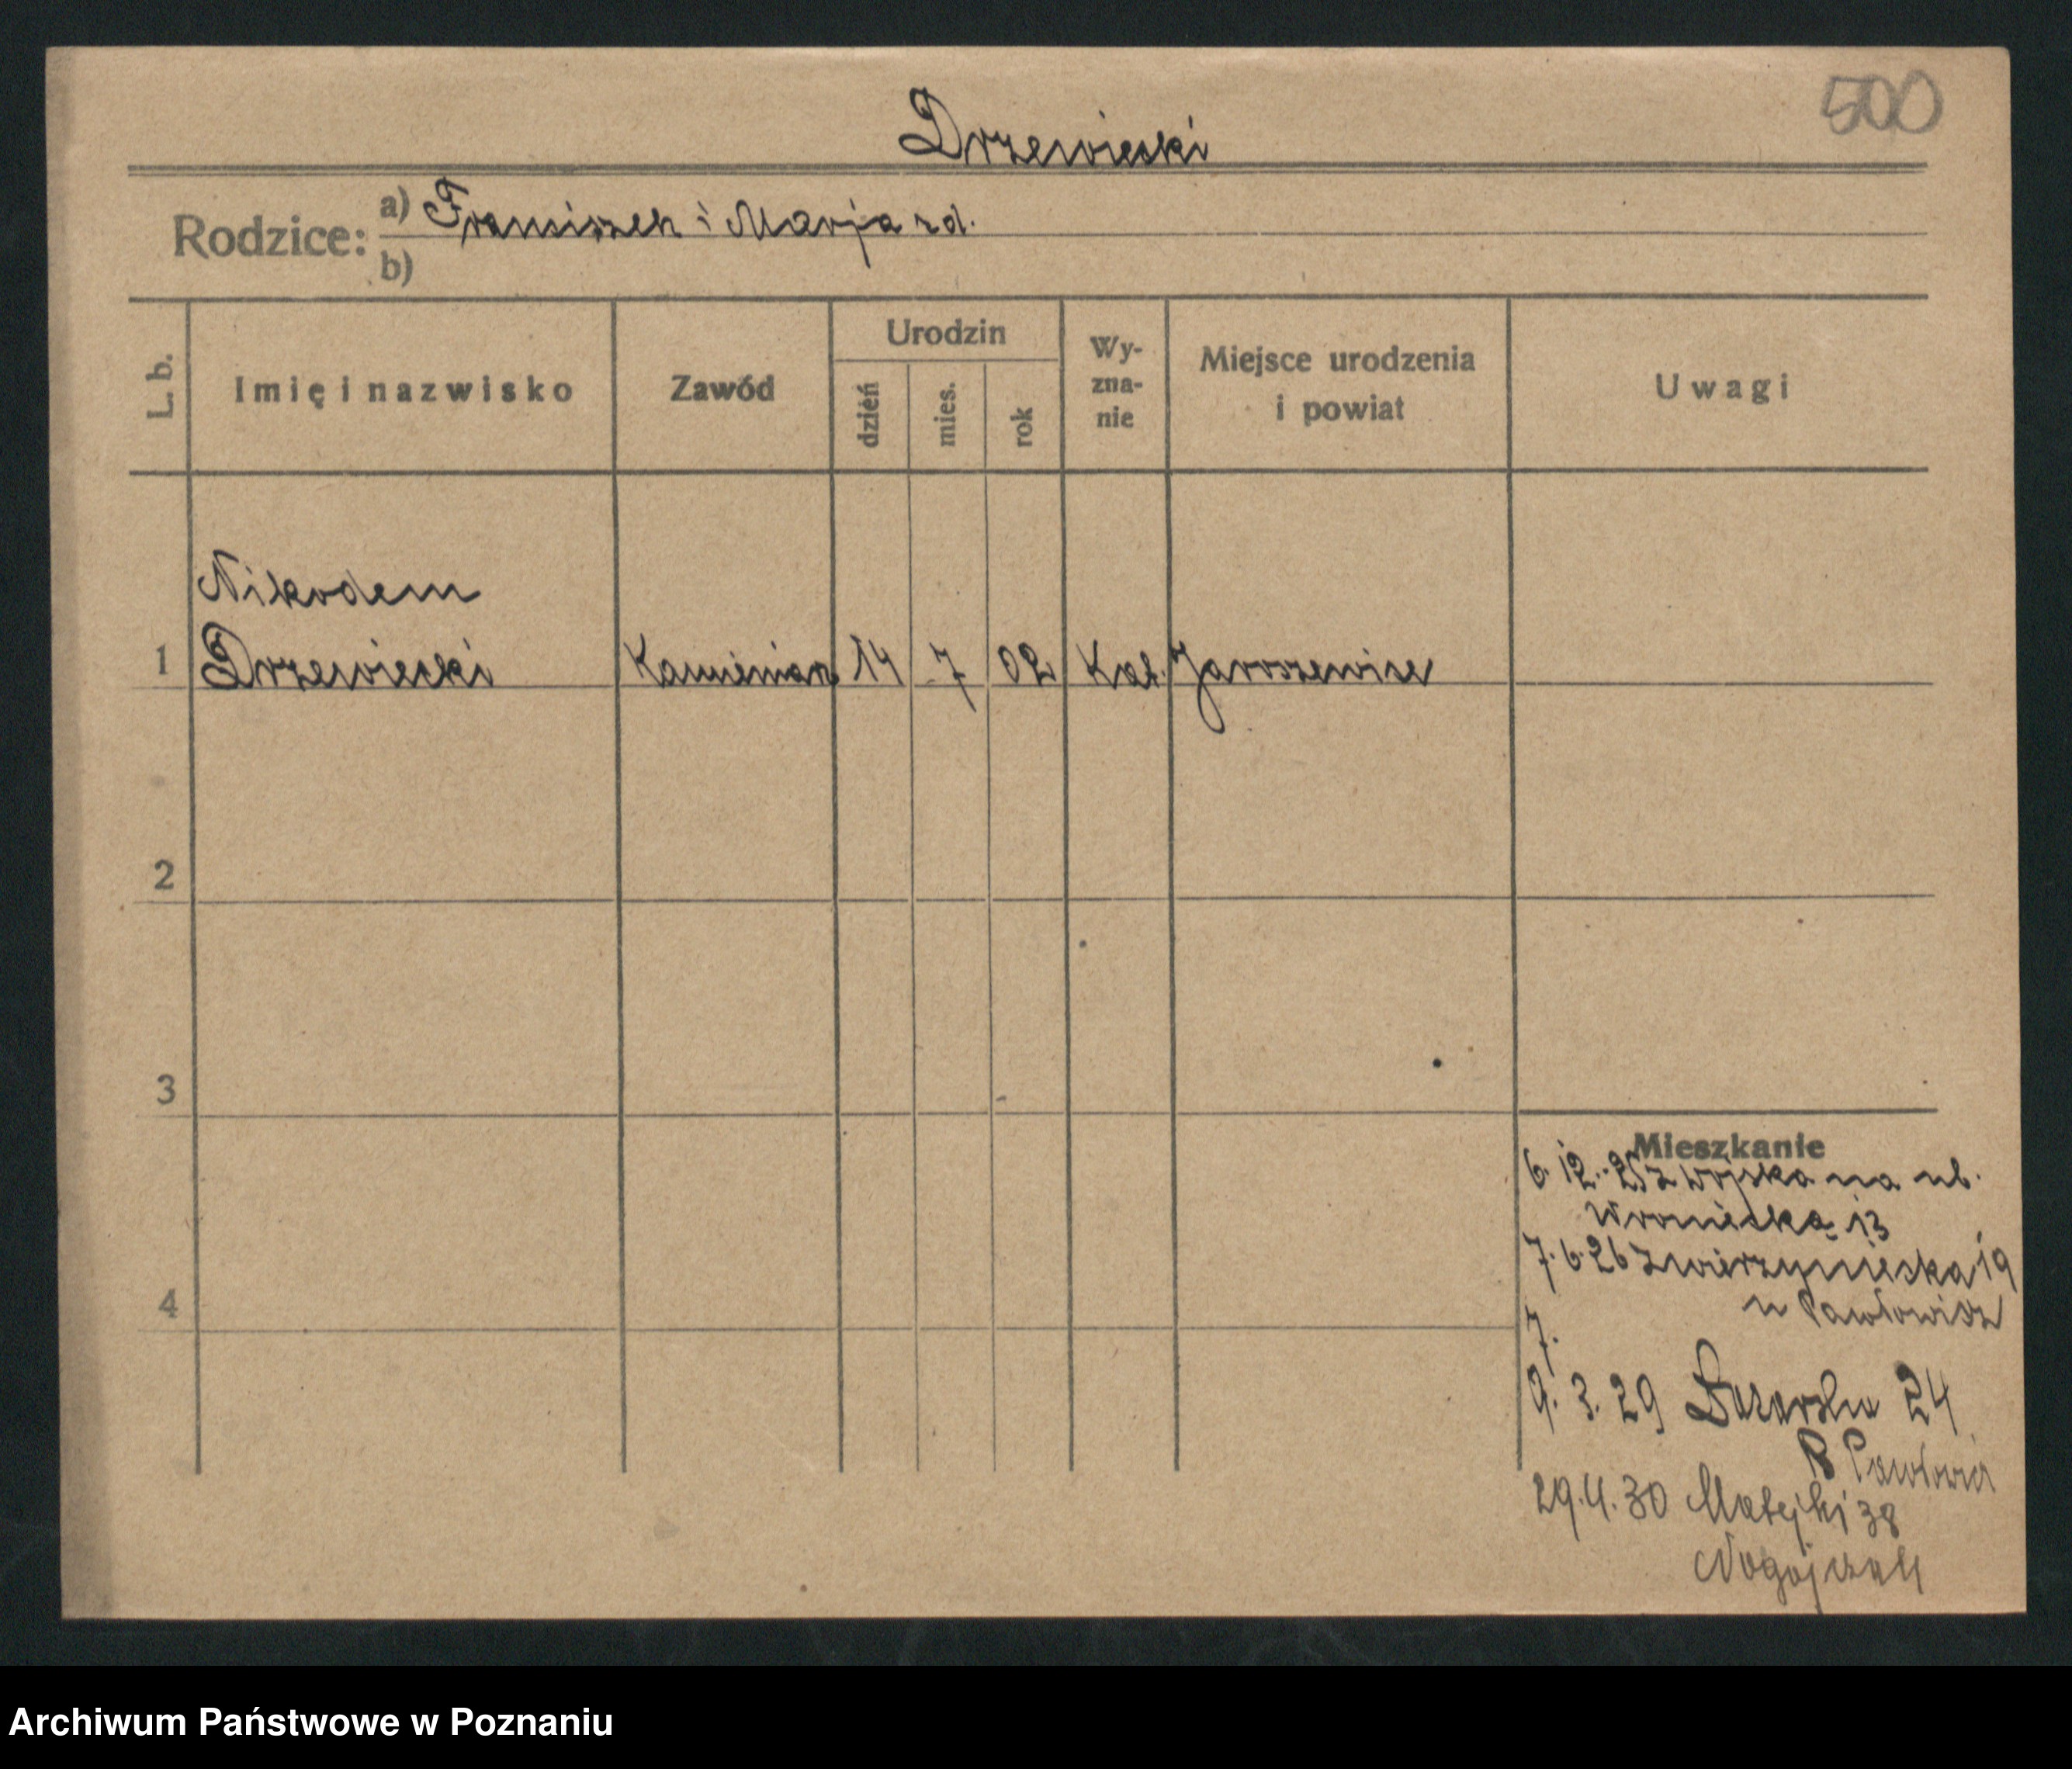 500
Drzewiecki
Rodzice: a) Franciszek i Marja zd.
b)
L. b. Imię i nazwisko Zawód Urodzin dzień mies. rok Wy-zna-nie Miejsce urodzenia i powiat Uwagi
Nikodem
1 Drzewiecki Kamieniarz 14 7 02 Kat.
2
3
Mieszkanie
6. 12. 25 z wojska na ul.
Wroniecką 13
7. 6. 26 Zwierzyniecka 19
4
7.
9. 3. 29 24
29. 4. 30 Matejki 38
Archiwum Państwowe w Poznaniu